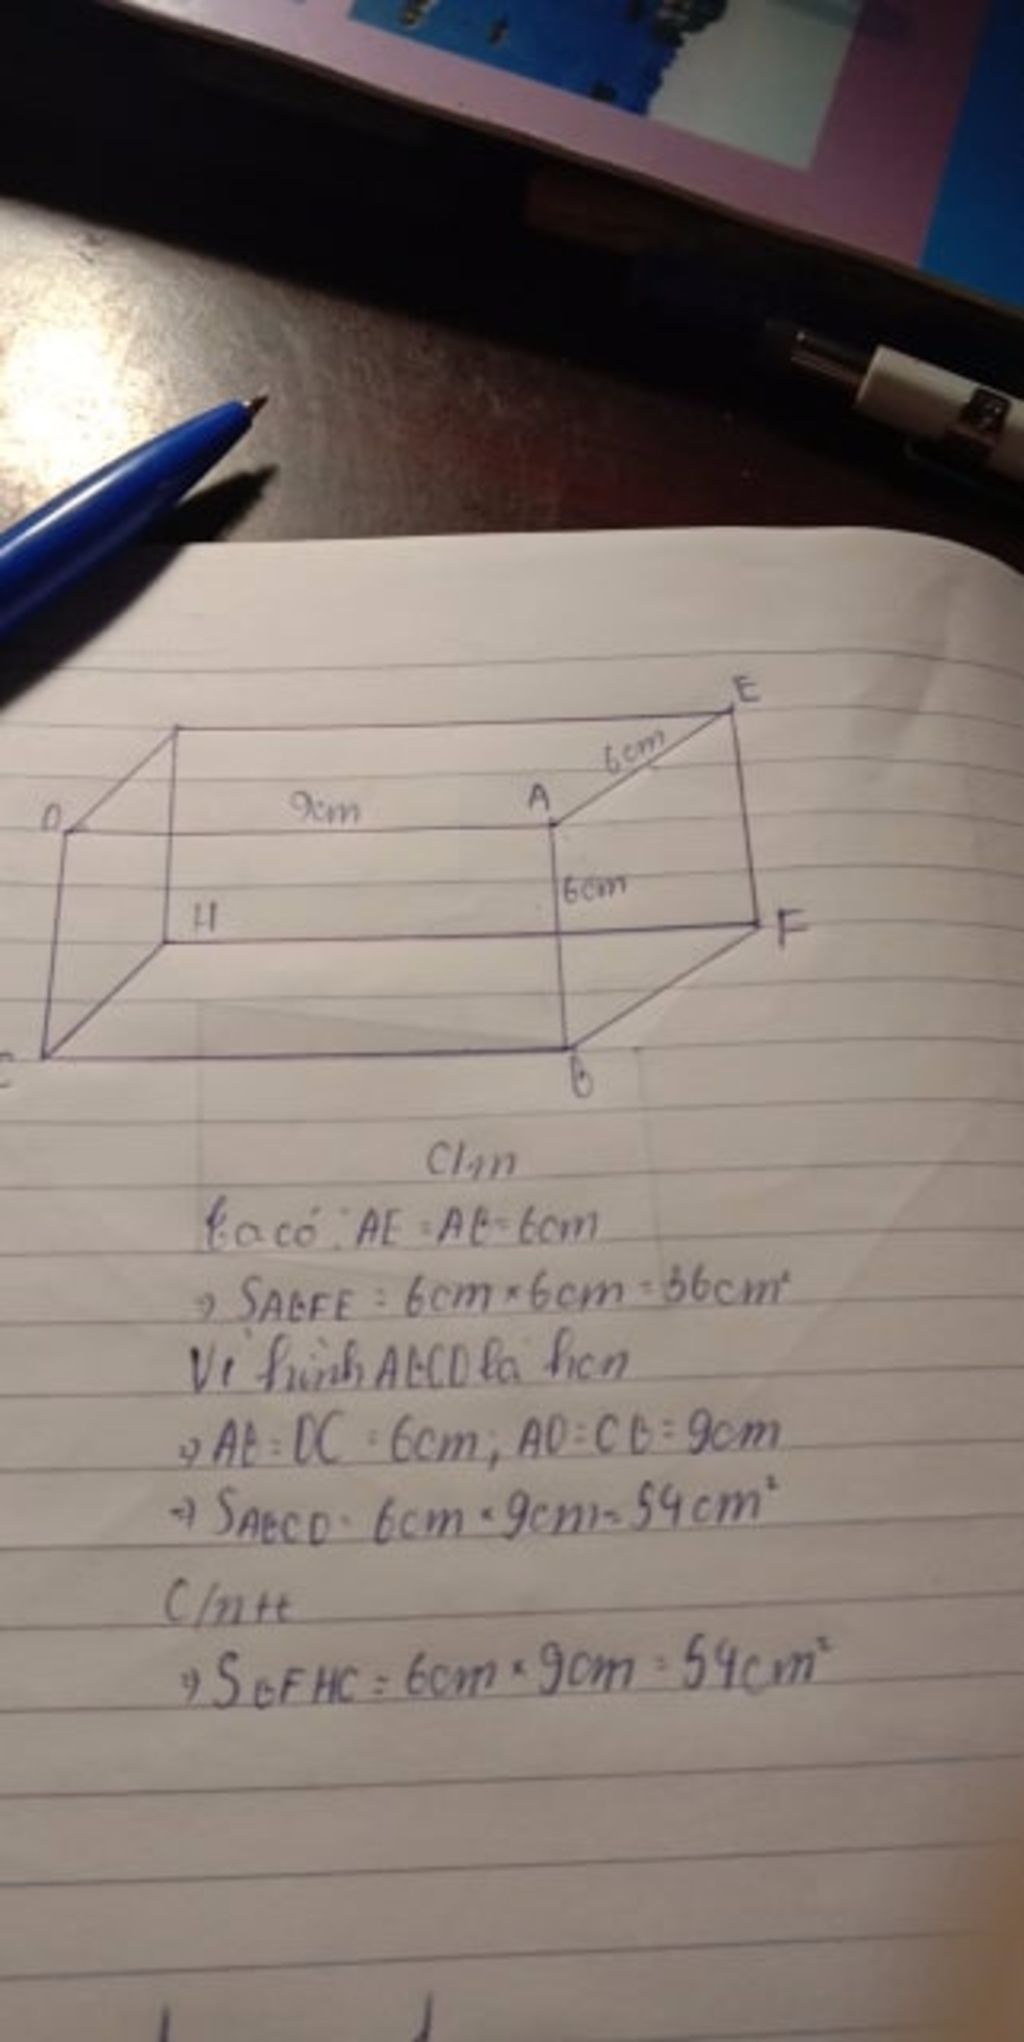 E
6cm
D
9cm
A
6cm
H
F
C
B
Cm
Ta có: AE = AB = 6cm
=> SABFE = 6cm × 6cm = 36cm²
Vì hình ABCD là hcn
=> AB = DC = 6cm; AD = CB = 9cm
=> SABCD = 6cm × 9cm = 54cm²
C/m tt
=> SBFHC = 6cm × 9cm = 54cm²